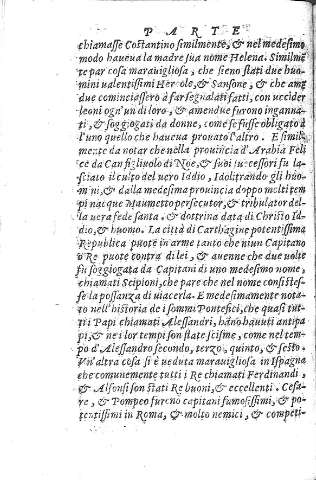 PARTE
chiamasse Costantino similmente, & nel medesimo
modo haueua la madre sua nome Helena. Similmẽ
te par cosa marauigliosa, che sieno stati due huo
mini ualentissimi Hercole, & Sansone, & che am̃
due cominciassero à far segnalati fatti, con uccider
leoni ogn'un di loro, & amendue furono inganna-
ti, & soggiogati da donne, come se fusse obligato à
l'uno quello che haueua prouato l'altro. E simil-
mente da notar che nella prouincia d'Arabia Feli
ce da Can figliuolo di Noe, & suoi successori fu la-
sciato il culto del uero Iddio, Idolitrando gli huo-
mini, & dalla medesima prouincia doppo molti tem
pi nacque Maumetto persecutor, & tribulator del-
la uera fede santa, & dottrina data di Christo Id-
dio, & huomo. La città di Carthagine potentissima
Republica puote in arme tanto che niun Capitano
ò Re puote contra di lei, & auenne che due uolte
fu soggiogata da Capitani di uno medesimo nome,
chiamati Scipioni, che pare che nel nome consistes-
se la possanza di uiacerla. E medesimamente nota-
to nell'historia de i sommi Pontefici, che quasi tut-
ti i Papi chiamati Alessandri, hãno hauuti antipa
pi, & ne i lor tempi son state scisme, come nel tem-
po d'Alessandro secondo, terzo, quinto, & sesto.
Vn'altra cosa si è ueduta marauigliosa in Ispagna
che comunemente tutti i Re chiamati Ferdinandi,
& Alfonsi son stati Re buoni, & eccellenti. Cesa-
re, & Pompeo furono capitani famosissimi, & po-
tentissimi in Roma, & molto nemici, & competi-